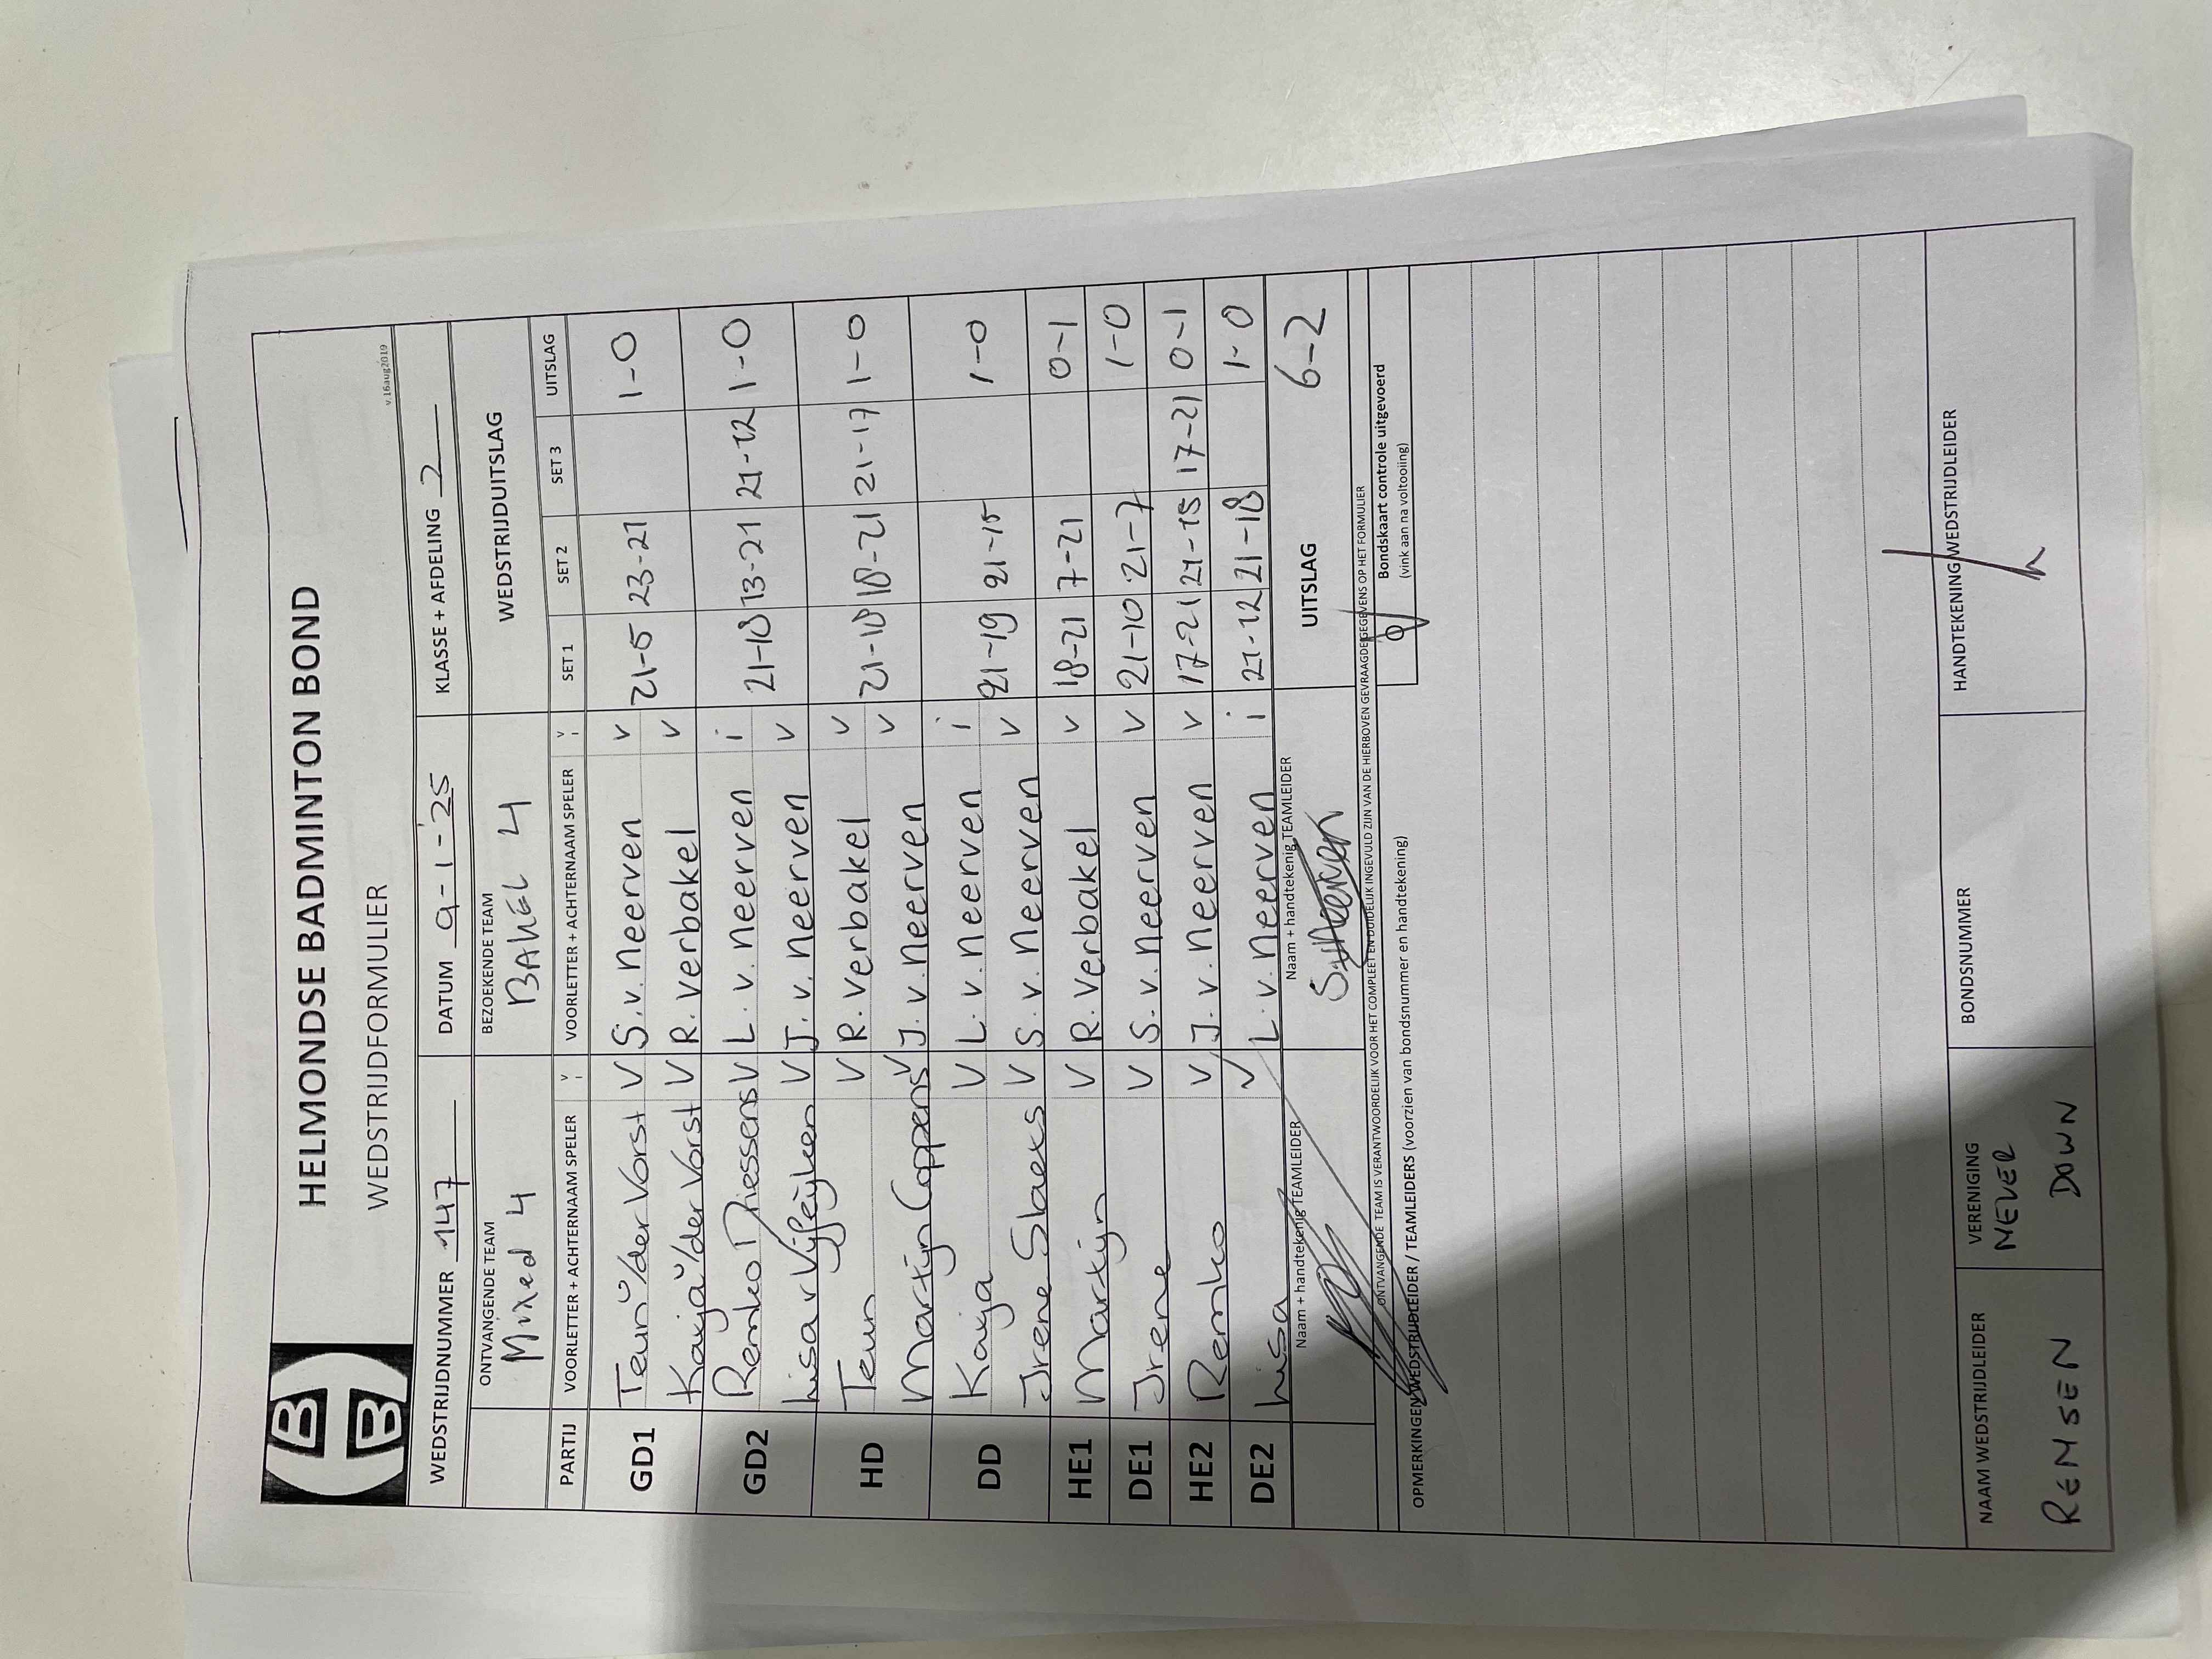 HELMONDSE BADMINTON BOND
WEDSTRIJDFORMULIER
v.16aug2019
WEDSTRIJDNUMMER 147 DATUM 9-1-'25 KLASSE + AFDELING 2
ONTVANGENDE TEAM BEZOEKENDE TEAM WEDSTRIJDUITSLAG
Mixed 4 BAKEL 4
PARTIJ VOORLETTER + ACHTERNAAM SPELER V i VOORLETTER + ACHTERNAAM SPELER V i SET 1 SET 2 SET 3 UITSLAG
GD1 Teun v/der Vorst V S. v. Neerven v 21-5 23-21 1-0
Kayja v/der Vorst V R. Verbakel v
GD2 Remko Driessens V L. v. Neerven i 21-18 13-21 21-12 1-0
Lisa v Vijfeijken V J. v. Neerven v
HD Teun V R. Verbakel v 21-18 18-21 21-17 1-0
Martijn Coppens V J. v. Neerven v
DD Kayja V L. v. Neerven i 21-19 21-15 1-0
Irene Slaets V S. v. Neerven v
HE1 Martijn V R. Verbakel v 18-21 7-21 0-1
DE1 Irene V S. v. Neerven v 21-10 21-7 1-0
HE2 Remko V J. v. Neerven v 17-21 21-15 17-21 0-1
DE2 Lisa V L. v. Neerven i 21-12 21-18 1-0
Naam + handtekenig TEAMLEIDER Naam + handtekenig TEAMLEIDER UITSLAG 6-2
S.v.Neerven
ONTVANGENDE TEAM IS VERANTWOORDELIJK VOOR HET COMPLEET EN DUIDELIJK INGEVULD ZIJN VAN DE HIERBOVEN GEVRAAGDE GEGEVENS OP HET FORMULIER
Bondskaart controle uitgevoerd
(vink aan na voltooiing)
OPMERKINGEN WEDSTRIJDLEIDER / TEAMLEIDERS (voorzien van bondsnummer en handtekening)
NAAM WEDSTRIJDLEIDER VERENIGING BONDSNUMMER HANDTEKENING WEDSTRIJDLEIDER
REMSEN NEVER DOWN